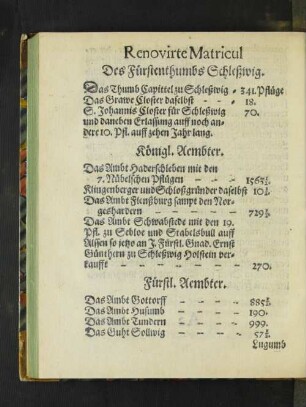 Renovirte Matricul
Des Fürstenthumbs Schleßwig.
Das Thumb Capittel zu Schleßwig - 341. Pflüge
Das Grawe Closter daselbst - - 18.
S. Johannis Closter für Schleßwig 70.
und daneben Erlassung auff noch an-
dere 10. Pfl. auff zehen Jahr lang.
Königl. Aembter.
Das Ambt Haderschleben mit den
7. Nübelschen Pflügen - - -
Klingenberger und Schloßgründer daselbst
Das Ambt Flenßburg sampt den Nor-
geshardern - - - -
Das Ambt Schwabstede mit den 19.
Pfl. zu Seblot und Stabelsbüll auff
Alsen so jetzo an J. Fürstl. Gnad. Ernst
Günthern zu Schleßwig Holstein ver-
kaufft - - - - - 270.
Fürstl. Aembter.
Das Ambt Gottorff - - -
Das Ambt Husumb - - - 190.
Das Ambt Tundern - - - 999.
Das Guht Sollwig - - -
Lugumb